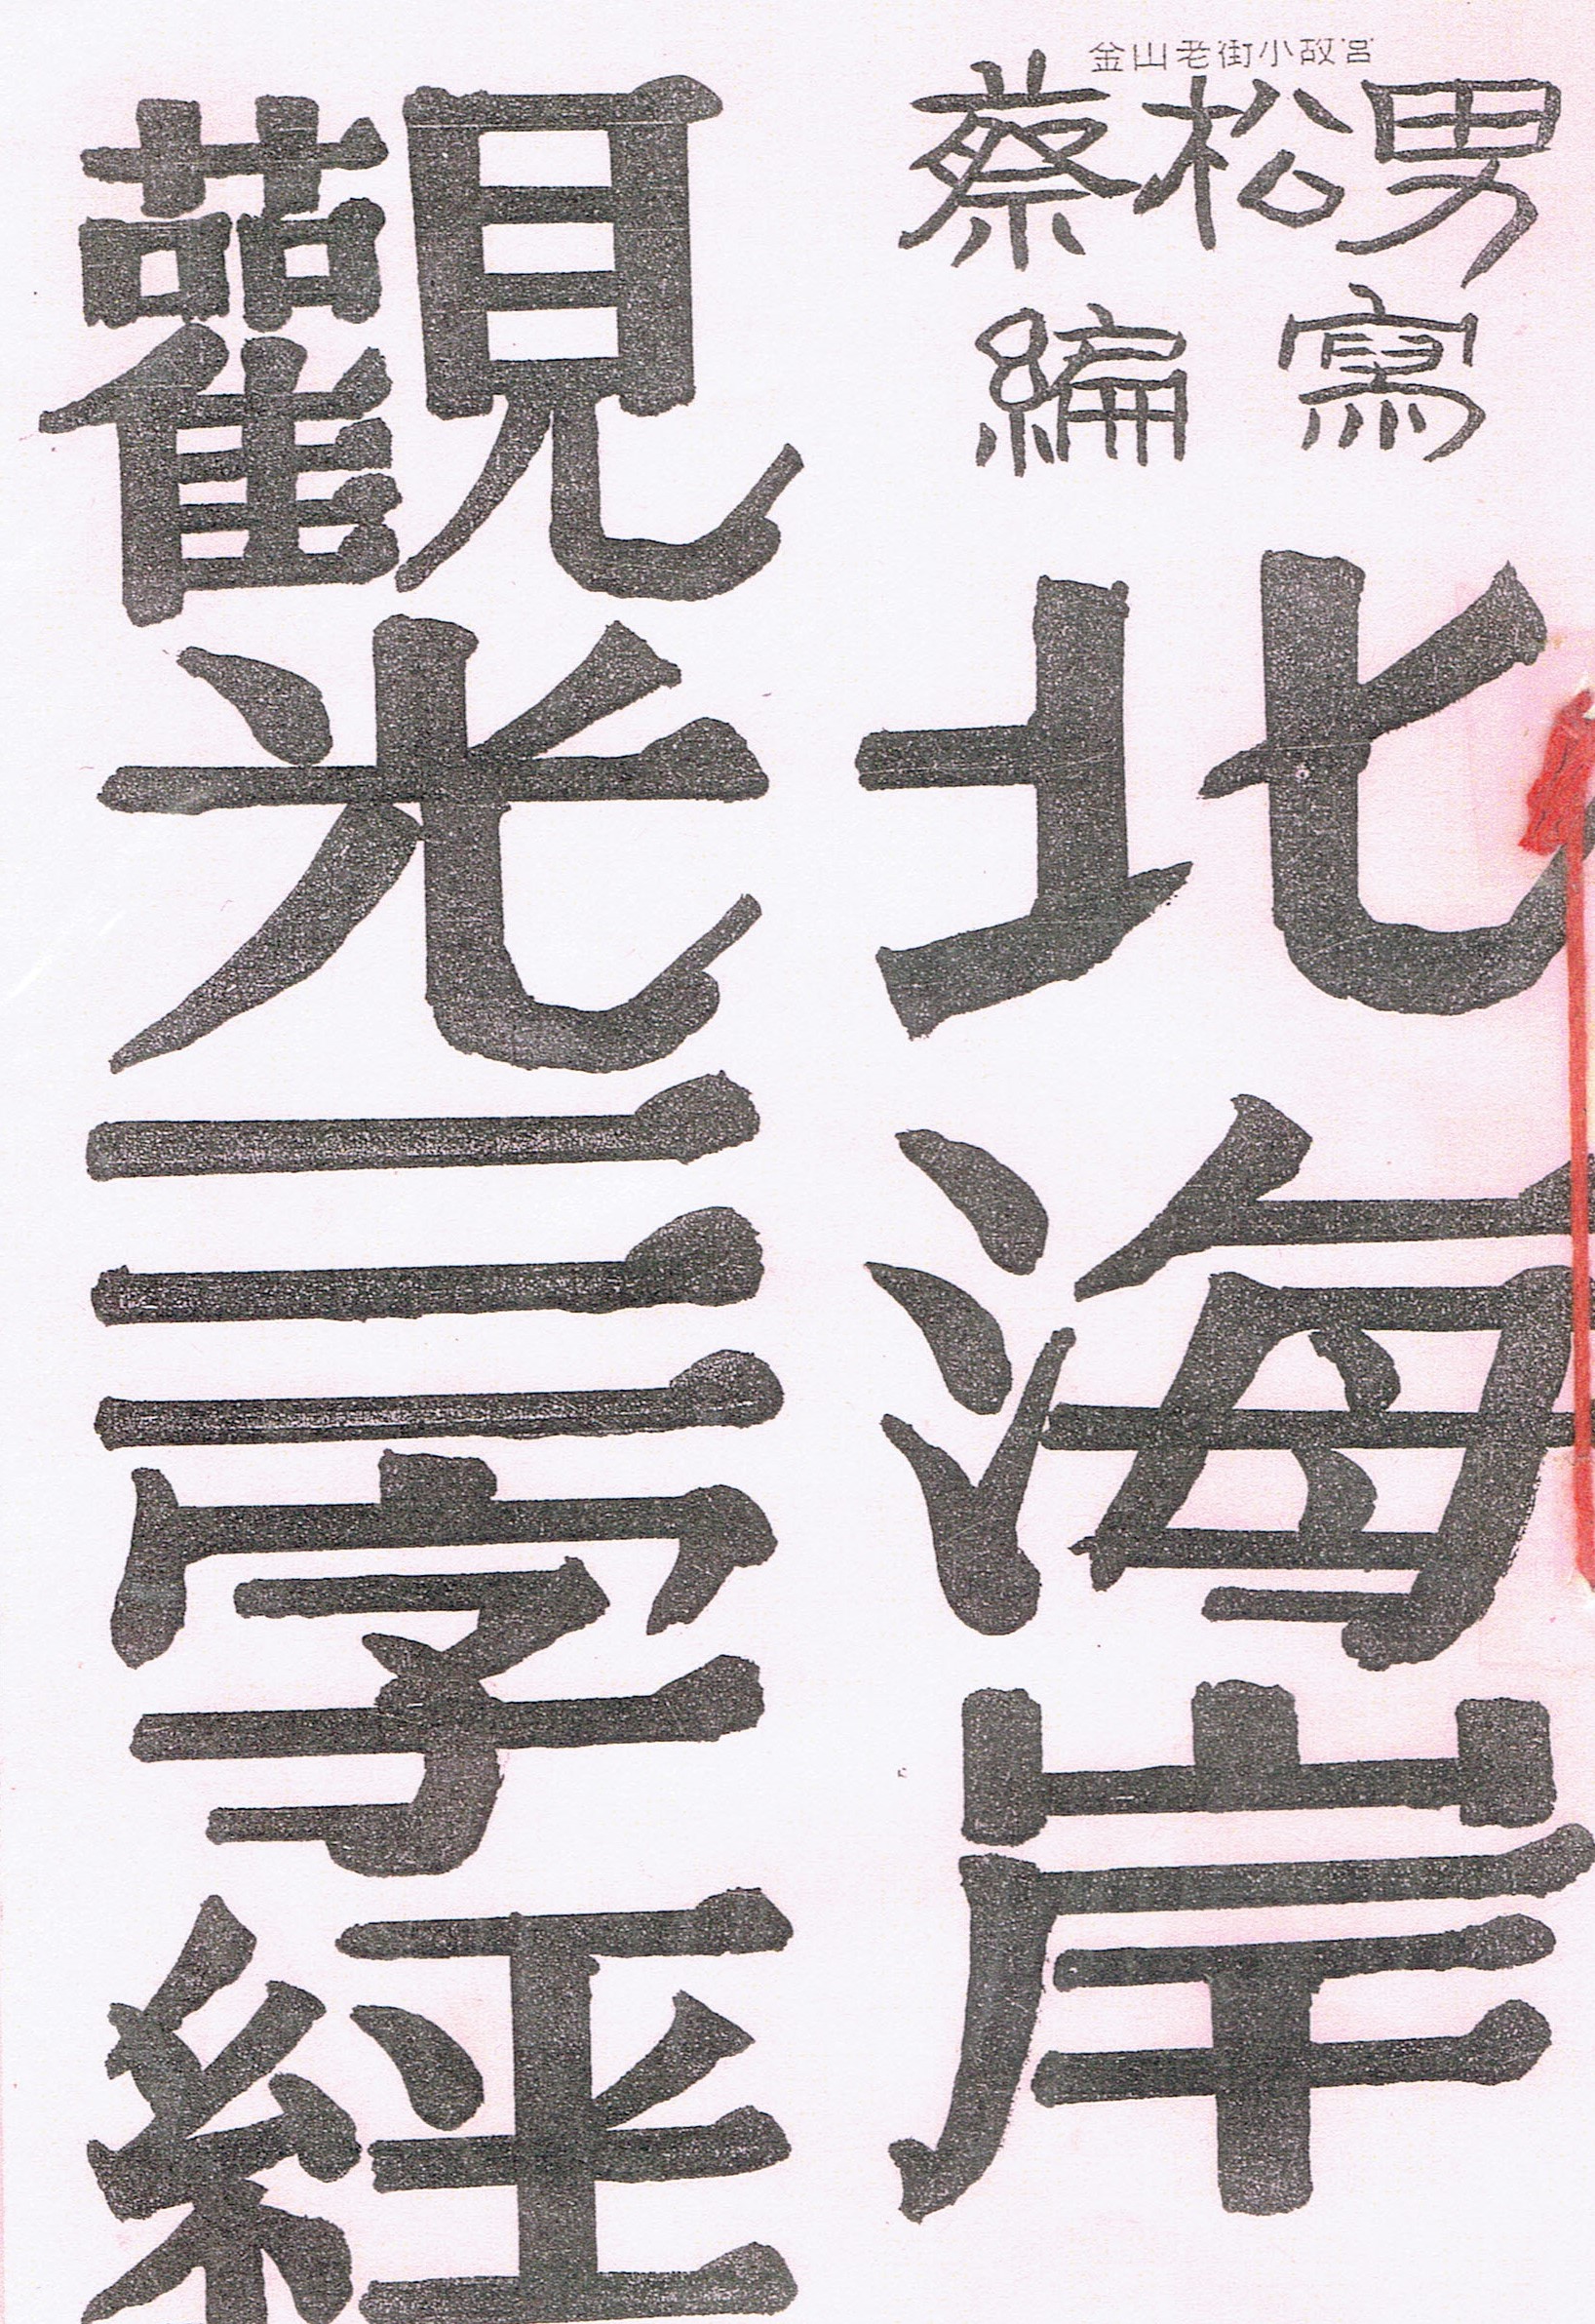 金山老街小故宮
蔡松男
編寫
北海岸
觀光三字經